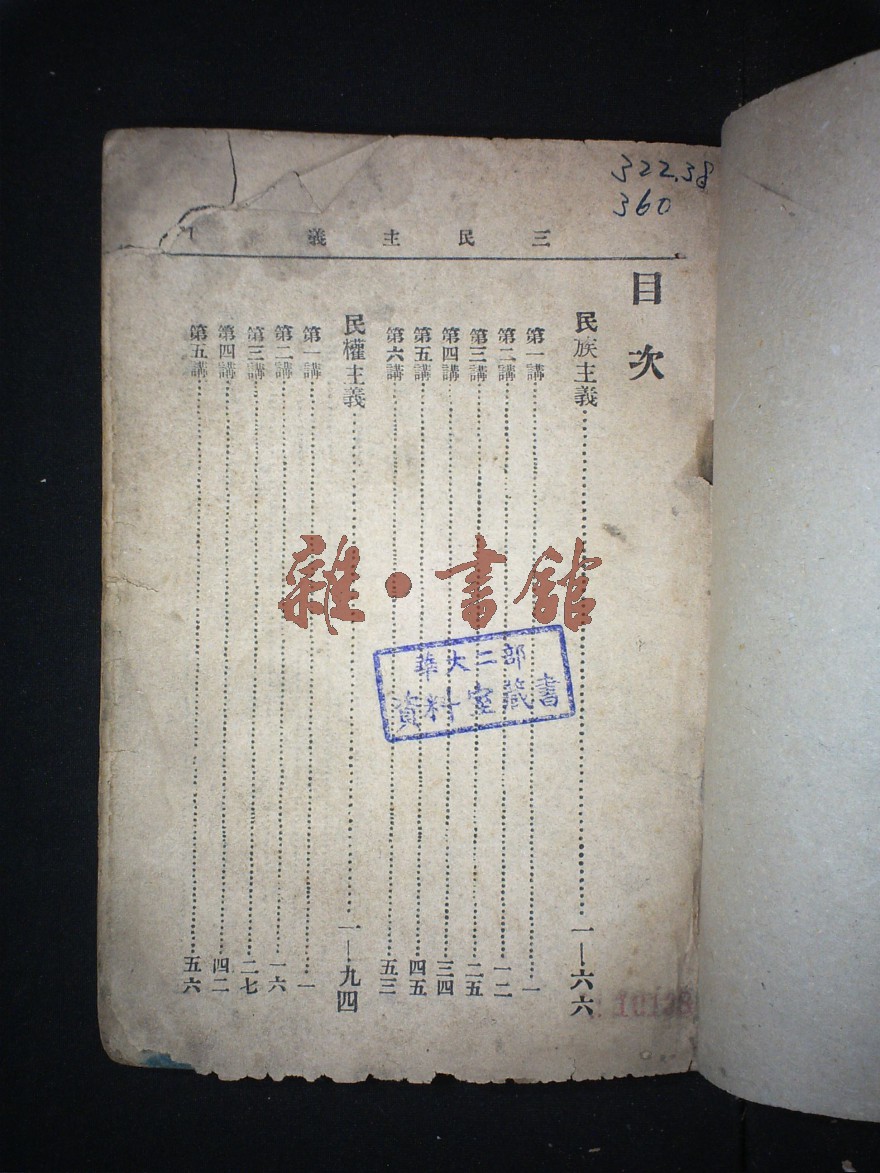 322.38
360
三民主義
目次
民族主義……一—六六
第一講……一
第二講……一二
第三講……二五
第四講……三四
第五講……四五
第六講……五三
民權主義……一—九四
第一講……一
第二講……一六
第三講……二七
第四講……四二
第五講……五六
雜·書館
華大二部
資料室藏書